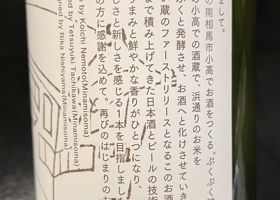 まして。
の南相馬市小高でお酒をつくる“ぷくぷく
の小高での酒蔵で、浜通りのお米を
くと発酵させ、お酒へと化けさせていき
蔵のファーストリリースとなるこのお酒
まで積み上げてきた日本酒とビールの技術
まみと鮮やかな香りがひとつになり、
しさと新しさを感じる1本を目指しまし
の方に感謝を込めて。再びのはじまりのお
by Koichi Nemoto(Minamisoma)
by Tetsuyuki Tachikawa(Minamisoma)
ned by Rika Nishiyama(Minamisoma)